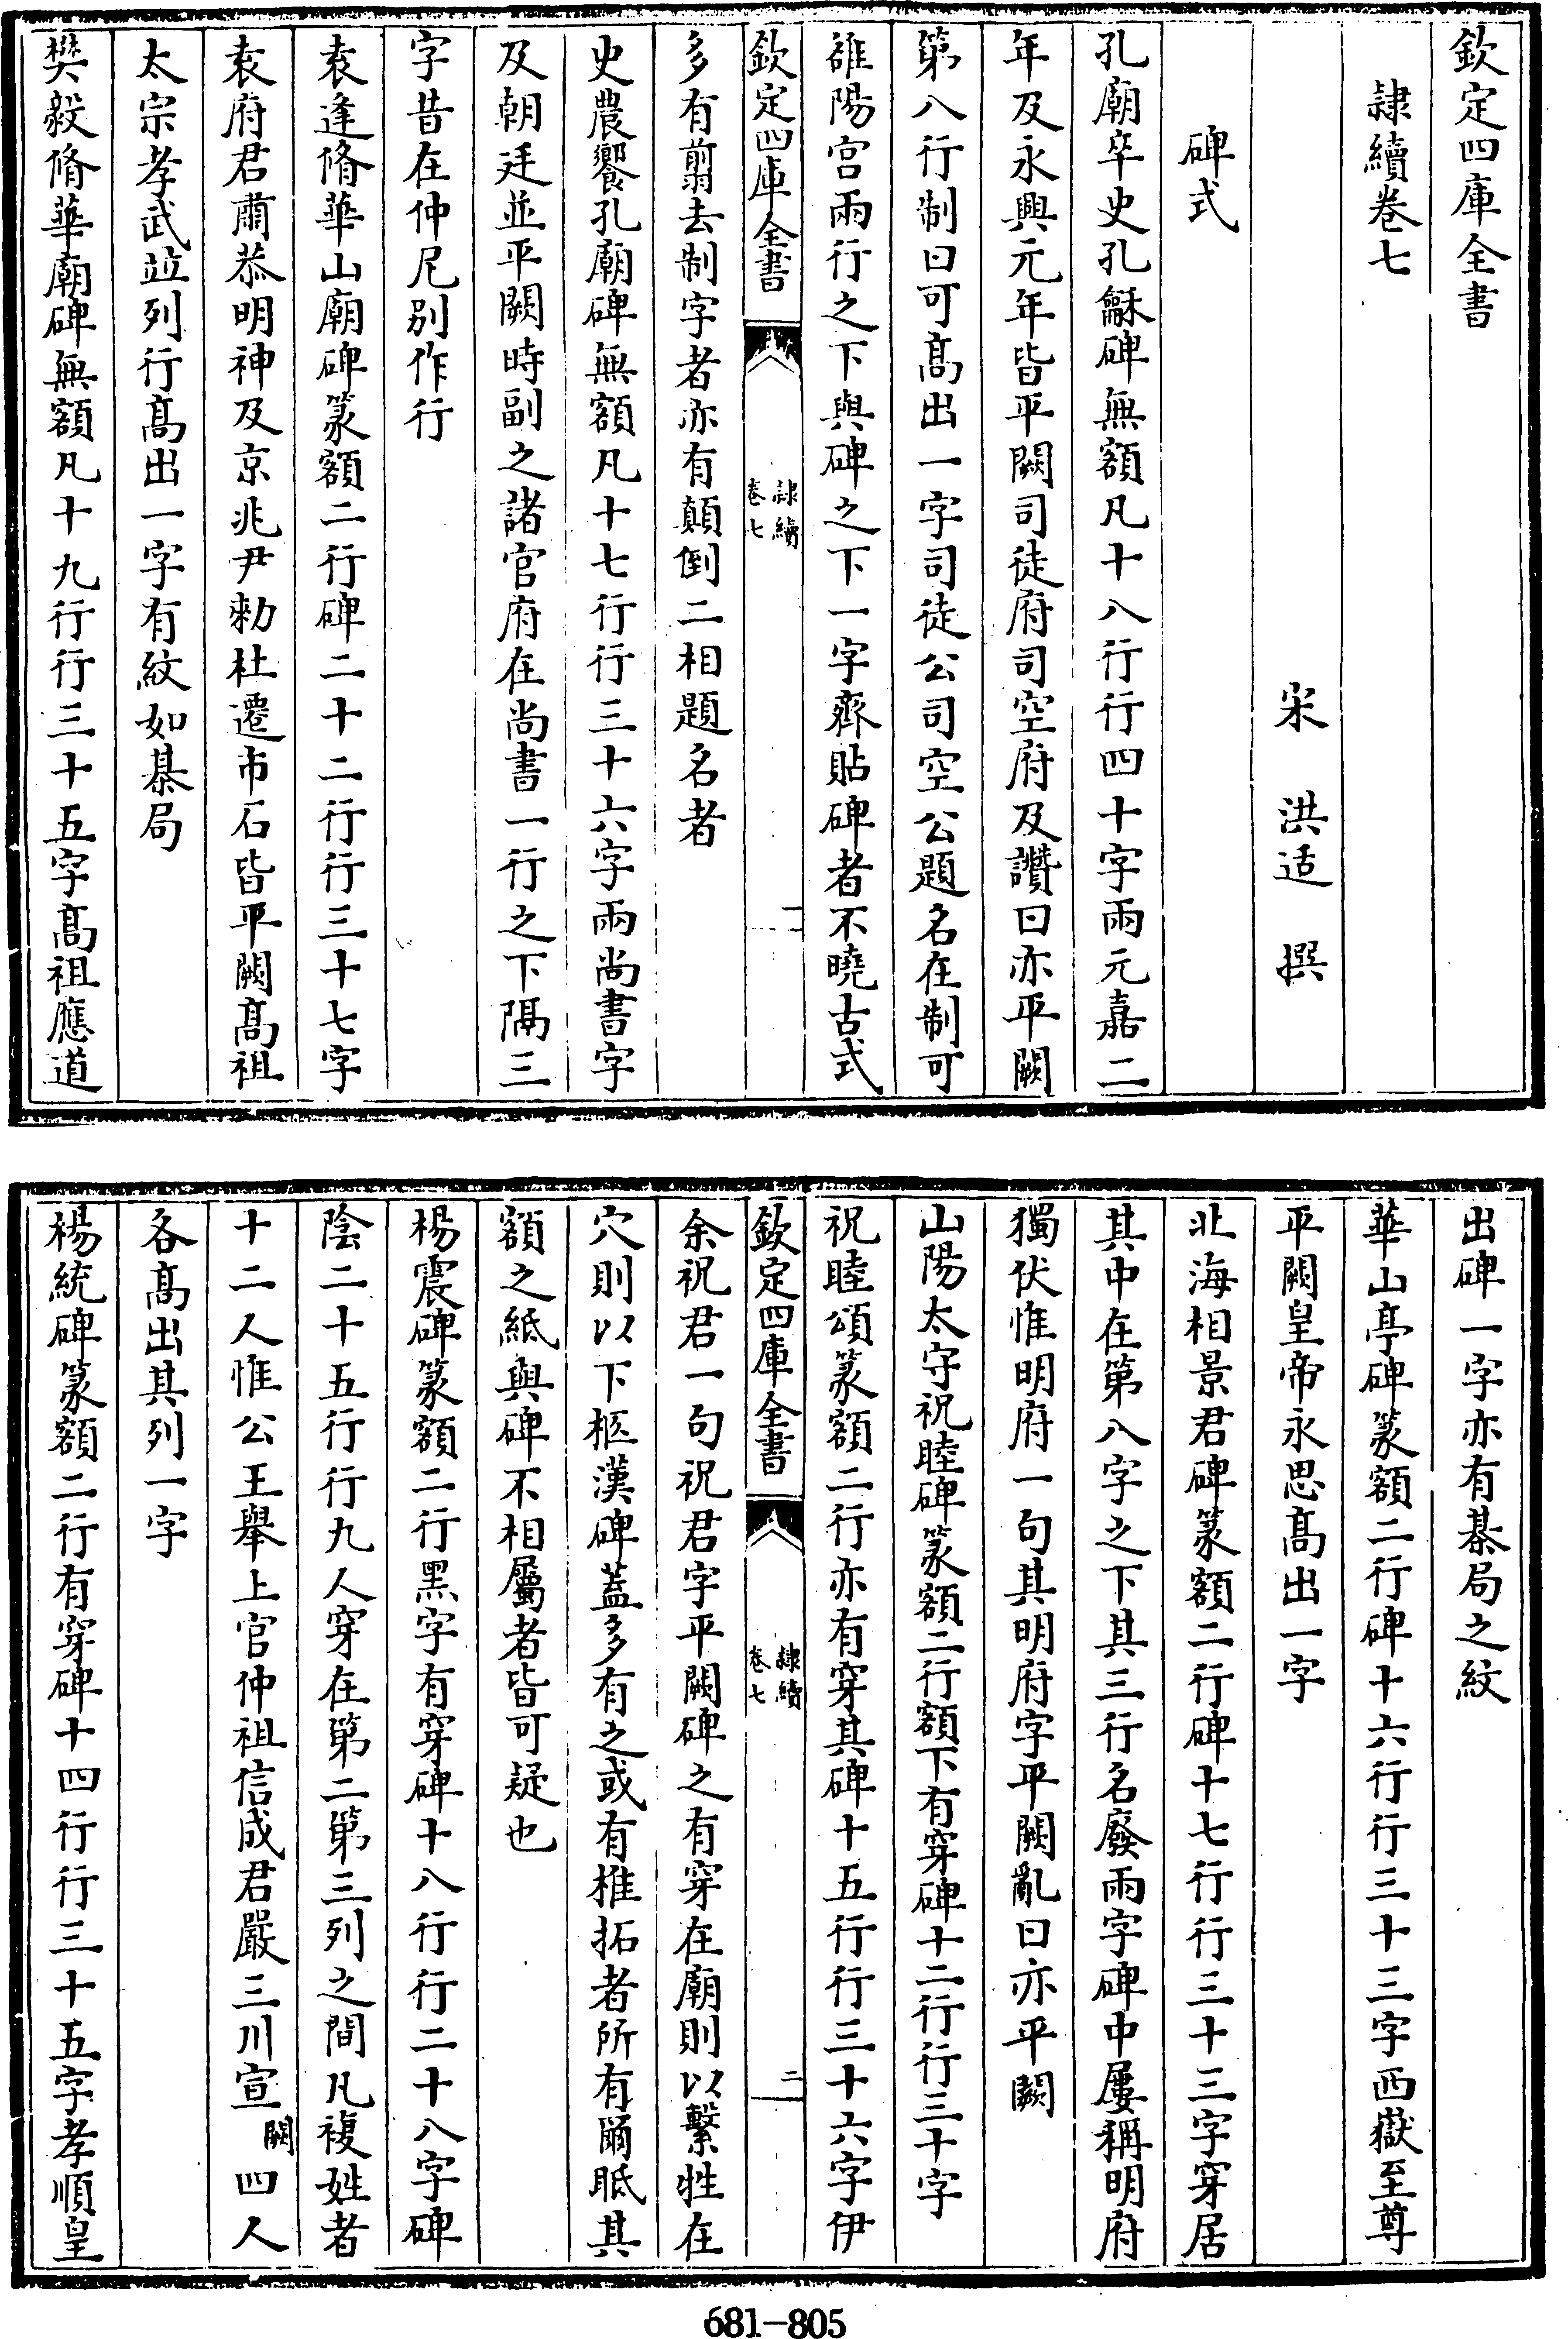 欽定四庫全書
隷續卷七
宋 洪适 撰
碑式
孔廟卒史孔龢碑無額凡十八行行四十字兩元嘉二
年及永興元年皆平闕司徒府司空府及讚曰亦平闕
第八行制曰可髙出一字司徒公司空公題名在制可
雒陽宮兩行之下與碑之下一字齊貼碑者不曉古式
欽定四庫全書
隷續
卷七
一
多有翦去制字者亦有顛倒二相題名者
史農饗孔廟碑無額凡十七行行三十六字兩尚書字
及朝廷並平闕時副之諸官府在尚書一行之下隔三
字昔在仲尼别作行
袁逢脩華山廟碑篆額二行碑二十二行行三十七字
袁府君肅恭明神及京兆尹勑杜遷市石皆平闕髙祖
太宗孝武竝列行髙出一字有紋如棊局
樊毅脩華廟碑無額凡十九行行三十五字髙祖應道
出碑一字亦有棊局之紋
華山亭碑篆額二行碑十六行行三十三字西嶽至尊
平闕皇帝永思髙出一字
北海相景君碑篆額二行碑十七行行三十三字穿居
其中在第八字之下其三行名廢兩字碑中屢稱明府
獨伏惟明府一句其明府字平闕亂曰亦平闕
山陽太守祝睦碑篆額二行額下有穿碑十二行行三十字
祝睦頌篆額二行亦有穿其碑十五行行三十六字伊
欽定四庫全書
隷續
卷七
二
余祝君一句祝君字平闕碑之有穿在廟則以繫牲在
穴則以下柩漢碑蓋多有之或有椎拓者所有爾眂其
額之紙與碑不相屬者皆可疑也
楊震碑篆額二行黑字有穿碑十八行行二十八字碑
陰二十五行行九人穿在第二第三列之間凡複姓者
十二人惟公王舉上官仲祖信成君嚴三川宣闕四人
各髙出其列一字
楊統碑篆額二行有穿碑十四行行三十五字孝順皇
681-805